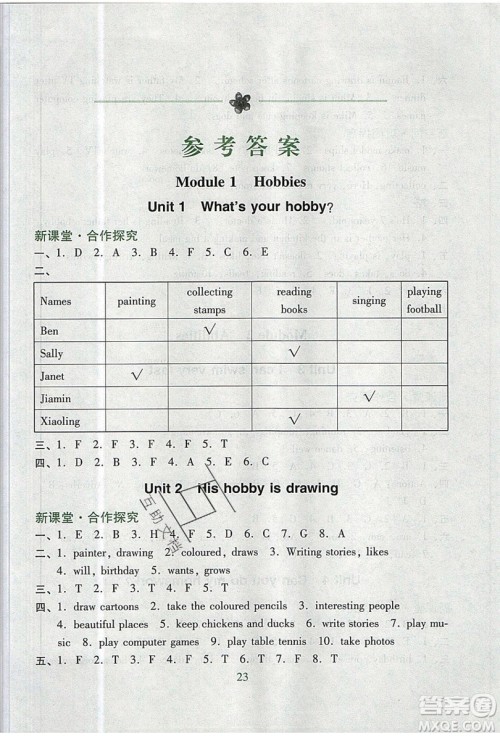 参考答案
Module 1 Hobbies
Unit 1 What's your hobby?
新课堂·合作探究
一、1. D 2. A 3. B 4. F 5. C 6. E
二、
Names painting collecting stamps reading books singing playing football
Ben ✓
Sally ✓
Janet ✓
Jiamin ✓
Xiaoling ✓
三、1. F 2. F 3. F 4. F 5. T
四、1. D 2. F 3. A 4. B 5. C
Unit 2 His hobby is drawing
新课堂·合作探究
一、1. E 2. B 3. H 4. F 5. D 6. C 7. G 8. A
二、1. painter, drawing 2. coloured, draws 3. Writing stories, likes
4. will, birthday 5. wants, grows
三、1. T 2. F 3. T 4. F 5. T
四、1. draw cartoons 2. take the coloured pencils 3. interesting people
4. beautiful places 5. keep chickens and ducks 6. write stories 7. play mu-
sic 8. play computer games 9. play table tennis 10. take photos
五、1. F 2. F 3. F 4. T 5. T
23
互助文档
答案圈
MXQE.COM